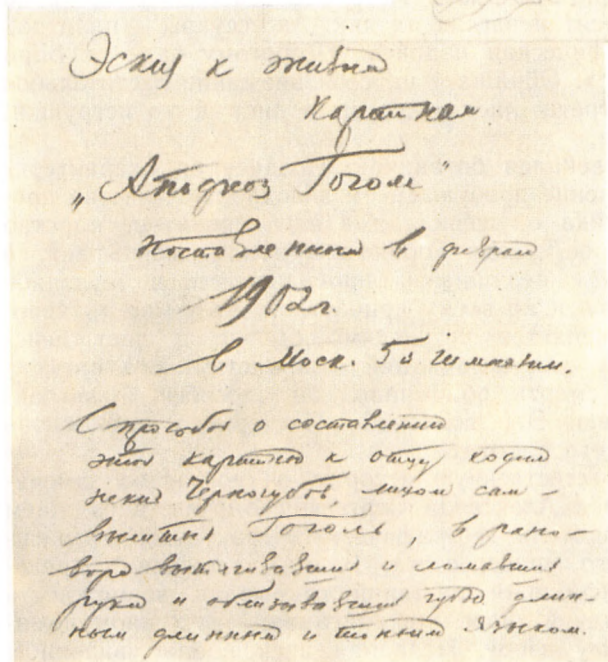 Эскиз к живым
картинам
„Апофеоз Гоголя
поставленным в феврале
1902 г.
в Моск. 5й гимназии.
С просьбой о составлении
этой картины к отцу ходил
некий Черногубов, лицом сам-
Гоголь, в разго-
воре вытягивавший и ломавший
руки и облизывавший губы длин-
ным длинным и тонким языком.